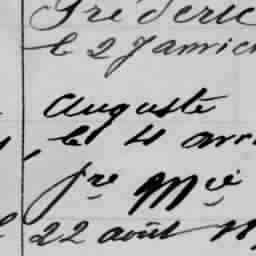 Fréderic
le 2 Janvier
Auguste
le 4 avri
fre Mie
22 août